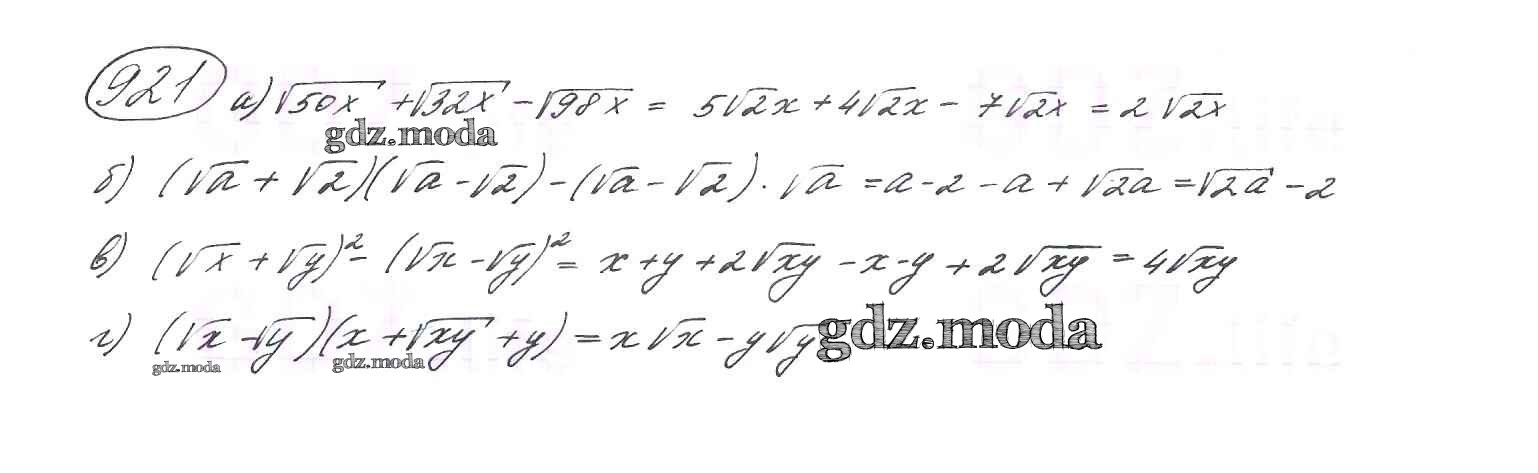 921 а) √50x + √32x − √98x = 5√2x + 4√2x − 7√2x = 2√2x
gdz.moda
б) (√a + √2)(√a − √2) − (√a − √2) · √a = a − 2 − a + √2a = √2a − 2
в) (√x + √y)² − (√x − √y)² = x + y + 2√xy − x − y + 2√xy = 4√xy
г) (√x − √y)(x + √xy + y) = x√x − y√y
gdz.moda
gdz.moda
gdz.moda